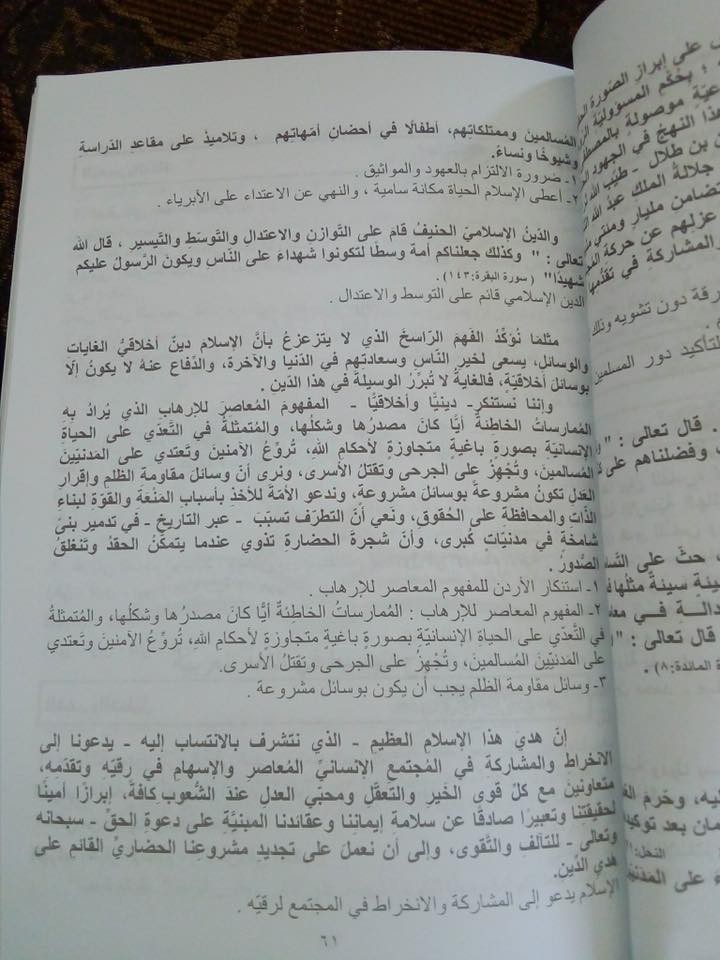 المُسالمينَ وممتلكاتِهم، أطفالًا في أحضانِ أمَهاتِهم ، وتلاميذُ على مقاعدِ الدّراسةِ
وشيوخًا ونساءً.
١- ضرورة الالتزام بالعهود والمواثيق .
٢- أعطى الإسلام الحياة مكانة سامية ، والنهي عن الاعتداء على الأبرياء .
والدّينُ الإسلاميّ الحنيفُ قام على التّوازنِ والاعتدالِ والتّوسّطِ والتّيسيرِ ، قال الله
تعالى : " وكذلك جعلناكم أمة وسطًا لتكونوا شهداءَ على النّاسِ ويكونَ الرّسولُ عليكم
شهيدًا" (سورة البقرة:١٤٣).
الدين الإسلامي قائم على التوسط والاعتدال .
مثلمَا نُؤكّدُ الفَهمَ الرّاسخَ الذي لا يتزعزعُ بأنَّ الإسلامَ دينٌ أخلاقيُّ الغاياتِ
والوسائلِ، يسعى لخيرِ النّاسِ وسعادتِهم في الدّنيا والآخرة، والدّفاع عنهُ لا يكونُ إلّا
بوسائلَ أخلاقيّةٍ، فالغايةُ لا تُبرّرُ الوسيلةَ في هذا الدّينِ .
وإننا نستنكر- دينيًّا وأخلاقيًّا - المفهومَ المُعاصرَ للإرهابِ الذي يُرادُ بِهِ
المُمارساتُ الخاطئةُ أيًّا كانَ مصدرُها وشكلُها، والمُتمثلةُ في التَّعدّي على الحياةِ
الإنسانيّةِ بصورةٍ باغيةٍ متجاوزةٍ لأحكامِ اللهِ، تُروّعُ الآمنينَ وتَعتدي على المَدنيّينَ
المُسالمينَ، وتُجْهِزُ على الجرحى وتقتلُ الأسرى، ونرى أنّ وسائلَ مقاومةِ الظلمِ وإقرارِ
العَدلِ تكونُ مشروعةً بوسائلَ مشروعةٍ، وندعو الأمّةَ للأخذِ بأسبابِ المَنْعَةِ والقوّةِ لبناءِ
الذّاتِ والمحافظةِ على الحُقوقِ، ونعي أنّ التطرفَ تسبّبَ - عبر التاريخِ - في تدميرِ بنىً
شامخةٍ في مدنيّاتٍ كُبرى، وأنّ شجرةَ الحضارةِ تذوي عندما يتمكّنُ الحقدُ وتَنغلقُ
الصُّدورُ .
١- استنكار الأردن للمفهوم المعاصر للإرهاب .
٢- المفهوم المعاصر للإرهاب : المُمارساتُ الخاطئةُ أيًّا كانَ مصدرُها وشكلُها، والمُتمثلةُ
في التَّعدّي على الحياةِ الإنسانيّةِ بصورةٍ باغيةٍ متجاوزةٍ لأحكامِ اللهِ، تُروّعُ الآمنينَ وتَعتدي
على المَدنيّينَ المُسالمينَ، وتُجْهِزُ على الجرحى وتقتلُ الأسرى.
٣- وسائل مقاومة الظلم يجب أن يكون بوسائل مشروعة .
إنّ هديَ هذا الإسلامِ العظيمِ - الذي نتشرف بالانتسابِ إليه - يدعونا إلى
الانخراطِ والمشاركةِ في المُجتمعِ الإنسانيِّ المُعاصرِ والإسهامِ في رقيّه وتقدّمِهِ،
متعاونينَ مع كلِّ قوى الخيرِ والتعقّلِ ومحبّي العدلِ عندَ الشُّعوبِ كافةً، إبرازًا أمينًا
لحقيقتِنا وتعبيرًا صادقًا عن سلامةِ إيمانِنا وعقائدِنا المبنيَّةِ على دعوةِ الحقِّ - سبحانه
وتعالى - للتآلفِ والتَّقوى، وإلى أن نعملَ على تجديدِ مشروعِنا الحضاريِّ القائمِ على
هديِ الدِّينِ.
الإسلام يدعو إلى المشاركة والانخراط في المجتمع لرقيّه .
٦١
على إبراز الصّورة
؛ بحُكم المسؤوليّة
موصولةٍ
هذا النهجُ في الجهود
بن طلال - طيّب الله
جلالةُ الملك عبدُ الله
مليار ومئتي
عزلهم عن حركة
والمشاركة في تقدّمها
دون تشويه وذلك
لتأكيد دور المسلمين
. قال تعالى : "
وفضلناهم على
، حثّ على
سيئةٍ سيئةٌ مثلُها
في
قال تعالى : "
المائدة:٨) .
إليه، وحَرم
بعد
النحل:
على